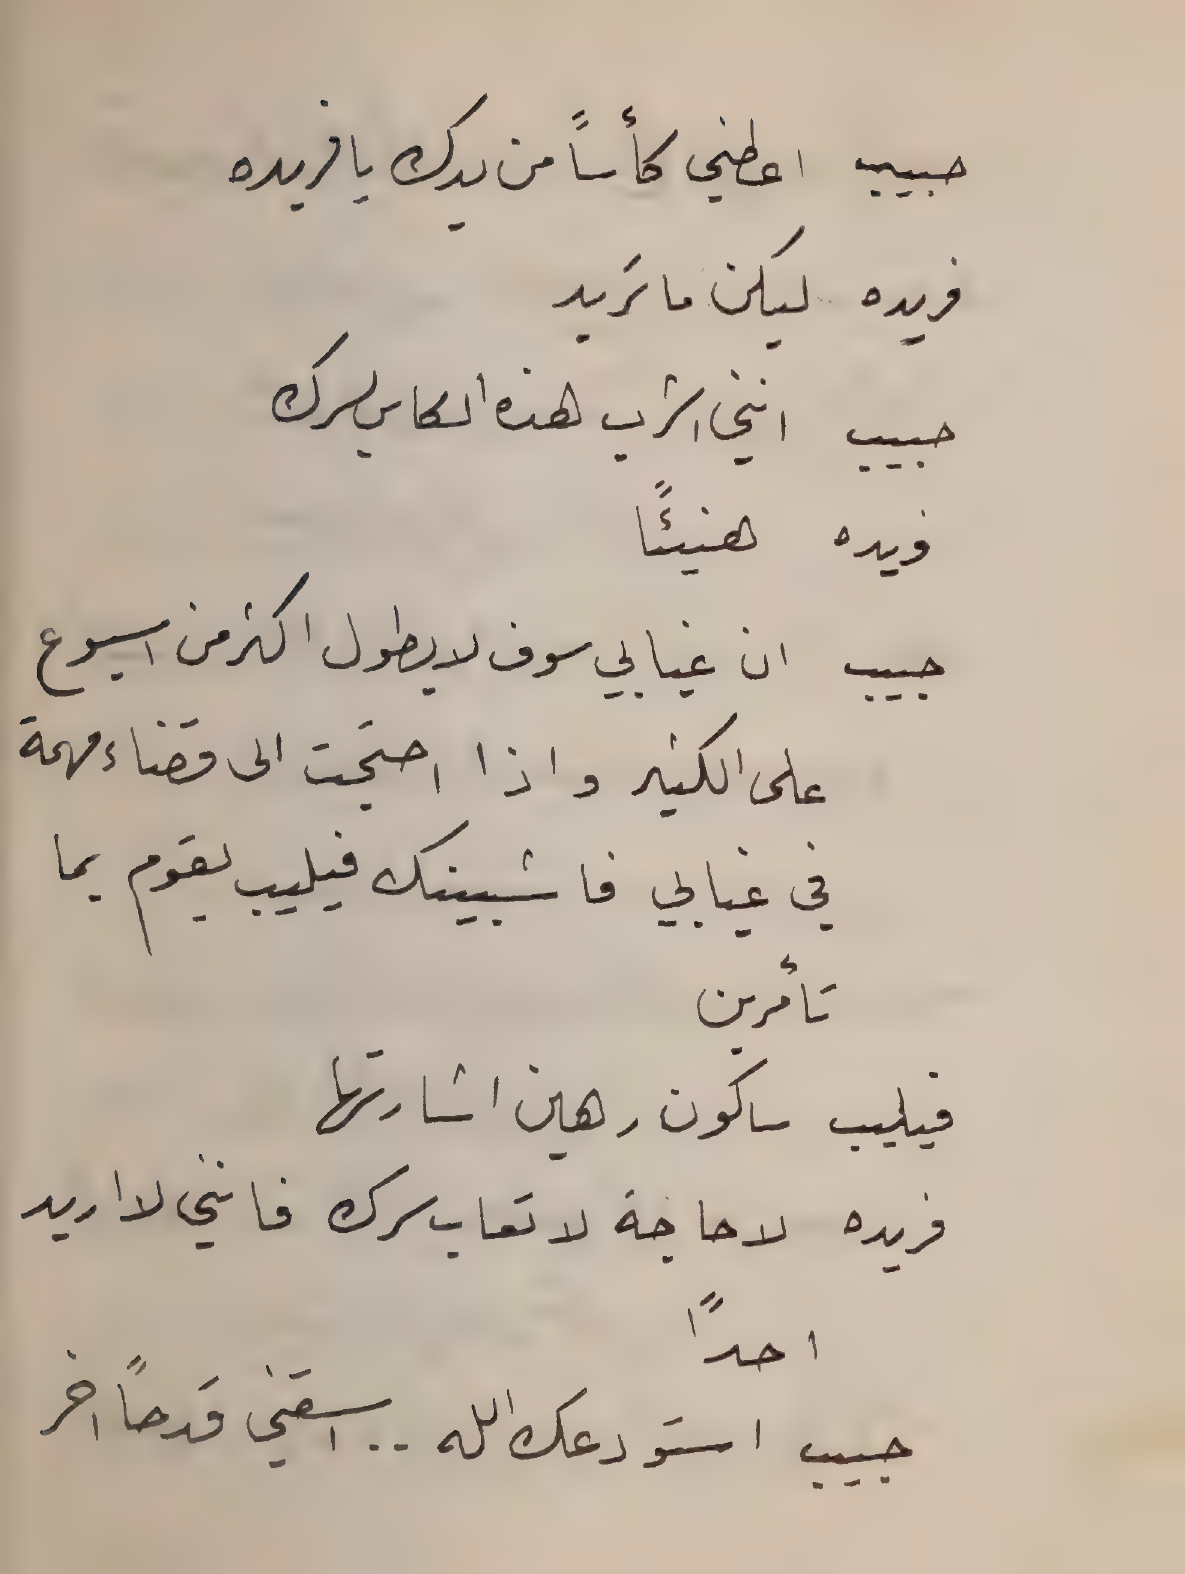 حبيب اعطني كأساً من يدك يا فريده
فريده ليكن ما تريد
حبيب انني اشرب هذه الكاس لسرك
فريده هنيئًا
حبيب ان غيابي سوف لا يطول اكثر من اسبوع
على الكثير واذا احتجت الى قضاء مهمة
في غيابي فاشبينك فيليب يقوم بما
تأمرين
فيليب ساكون رهين اشارتها
فريده لا حاجة لاتعاب سرك فانني لا اريد
احدًا
حبيب استودعك الله .. اسقني قدحاً اخر